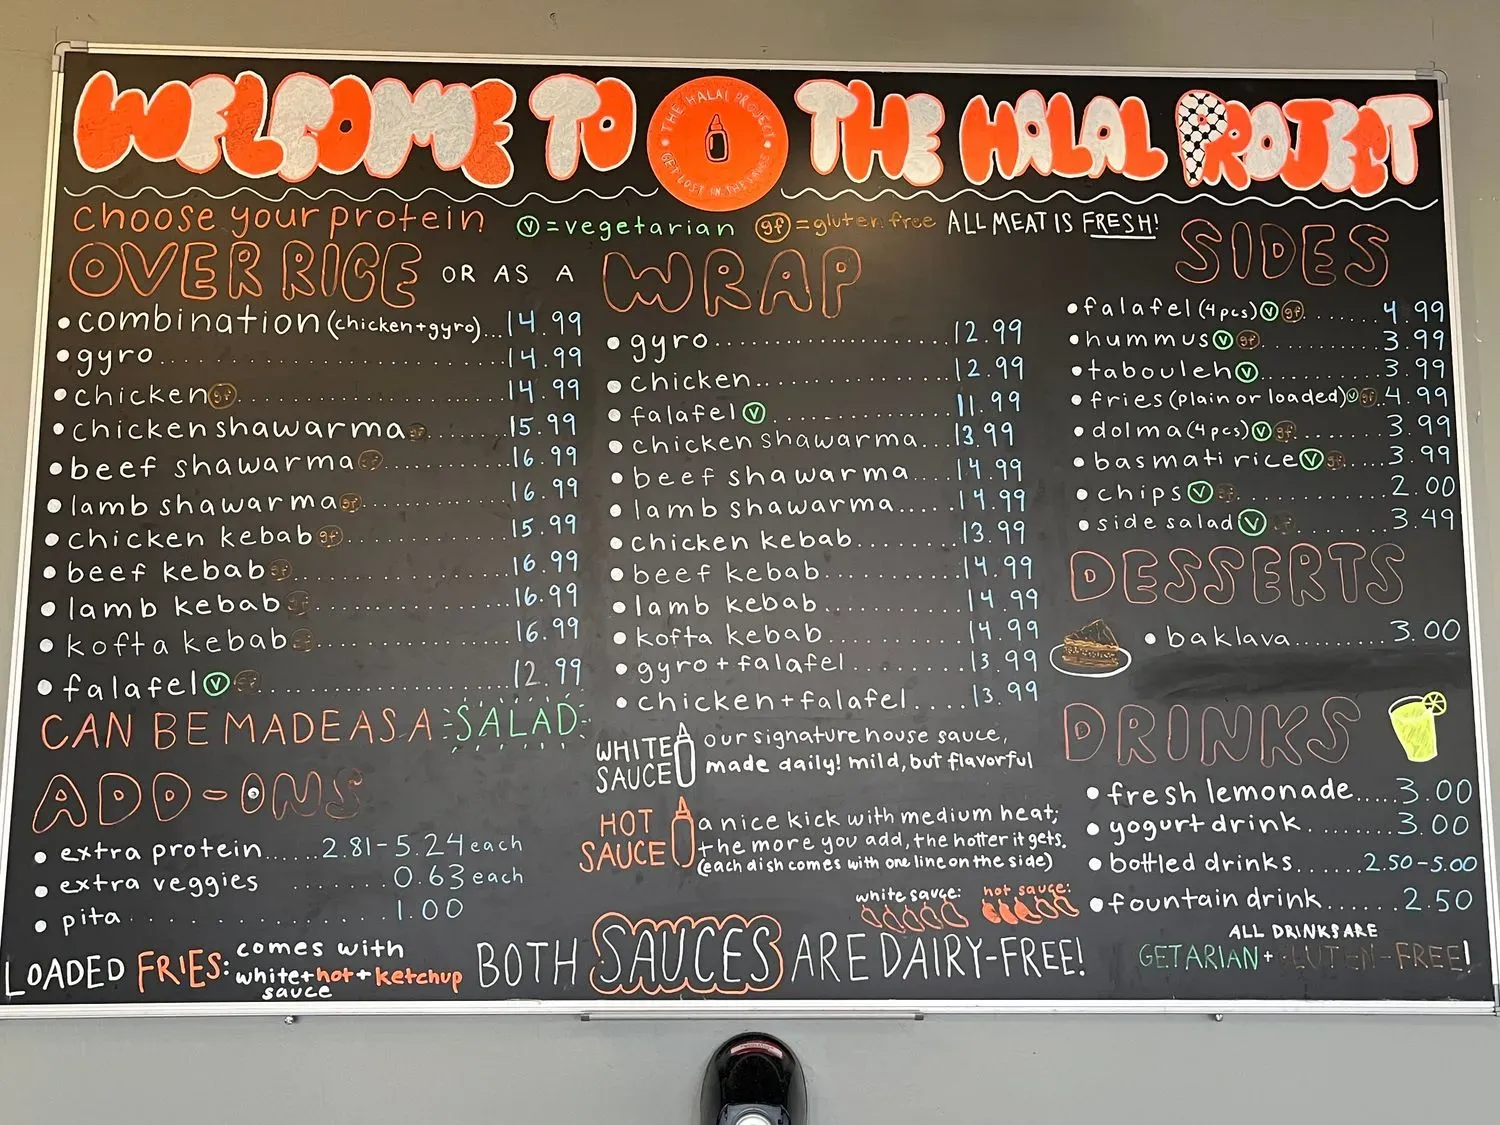 WELCOME TO THE HALAL PROJECT
THE HALAL PROJECT
GET LOST IN THE SAUCE
choose your protein
V = vegetarian gf = gluten free ALL MEAT IS FRESH!
OVER RICE OR AS A WRAP
• combination (chicken + gyro)... 14.99
• gyro 14.99
• chicken gf 14.99
• chicken shawarma gf 15.99
• beef shawarma gf 16.99
• lamb shawarma gf 16.99
• chicken kebab gf 15.99
• beef kebab gf 16.99
• lamb kebab gf 16.99
• kofta kebab gf 16.99
• falafel V gf 12.99
CAN BE MADE AS A SALAD
ADD-ONS
• extra protein 2.81-5.24 each
• extra veggies 0.63 each
• pita 1.00
LOADED FRIES: comes with
white + hot + ketchup
sauce
• gyro 12.99
• chicken 12.99
• falafel V 11.99
• chicken shawarma... 13.99
• beef shawarma... 14.99
• lamb shawarma 14.99
• chicken kebab 13.99
• beef kebab 14.99
• lamb kebab 14.99
• kofta kebab 14.99
• gyro + falafel 13.99
• chicken + falafel 13.99
WHITE SAUCE
our signature house sauce,
made daily! mild, but flavorful
HOT SAUCE
a nice kick with medium heat;
the more you add, the hotter it gets.
(each dish comes with one line on the side)
white sauce: hot sauce:
BOTH SAUCES ARE DAIRY-FREE!
SIDES
• falafel (4 pcs) V gf 4.99
• hummus V gf 3.99
• tabouleh V 3.99
• fries (plain or loaded) V gf 4.99
• dolma (4 pcs) V gf 3.99
• basmati rice V gf 3.99
• chips V gf 2.00
• side salad V 3.49
DESSERTS
• baklava 3.00
DRINKS
• fresh lemonade 3.00
• yogurt drink 3.00
• bottled drinks 2.50-5.00
• fountain drink 2.50
ALL DRINKS ARE
GETARIAN + GLUTEN-FREE!